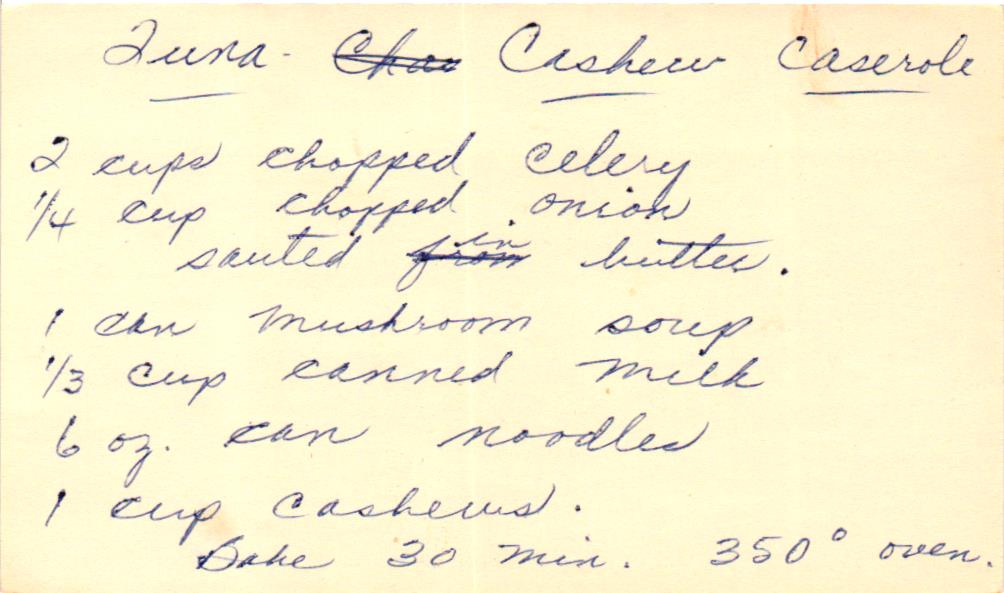 Tuna - Cashew Caserole
2 cups chopped celery
1/4 cup chopped onion
sauted in butter.
1 can mushroom soup
1/3 cup canned milk
6 oz. can noodles
1 cup cashews.
Bake 30 min. 350° oven.